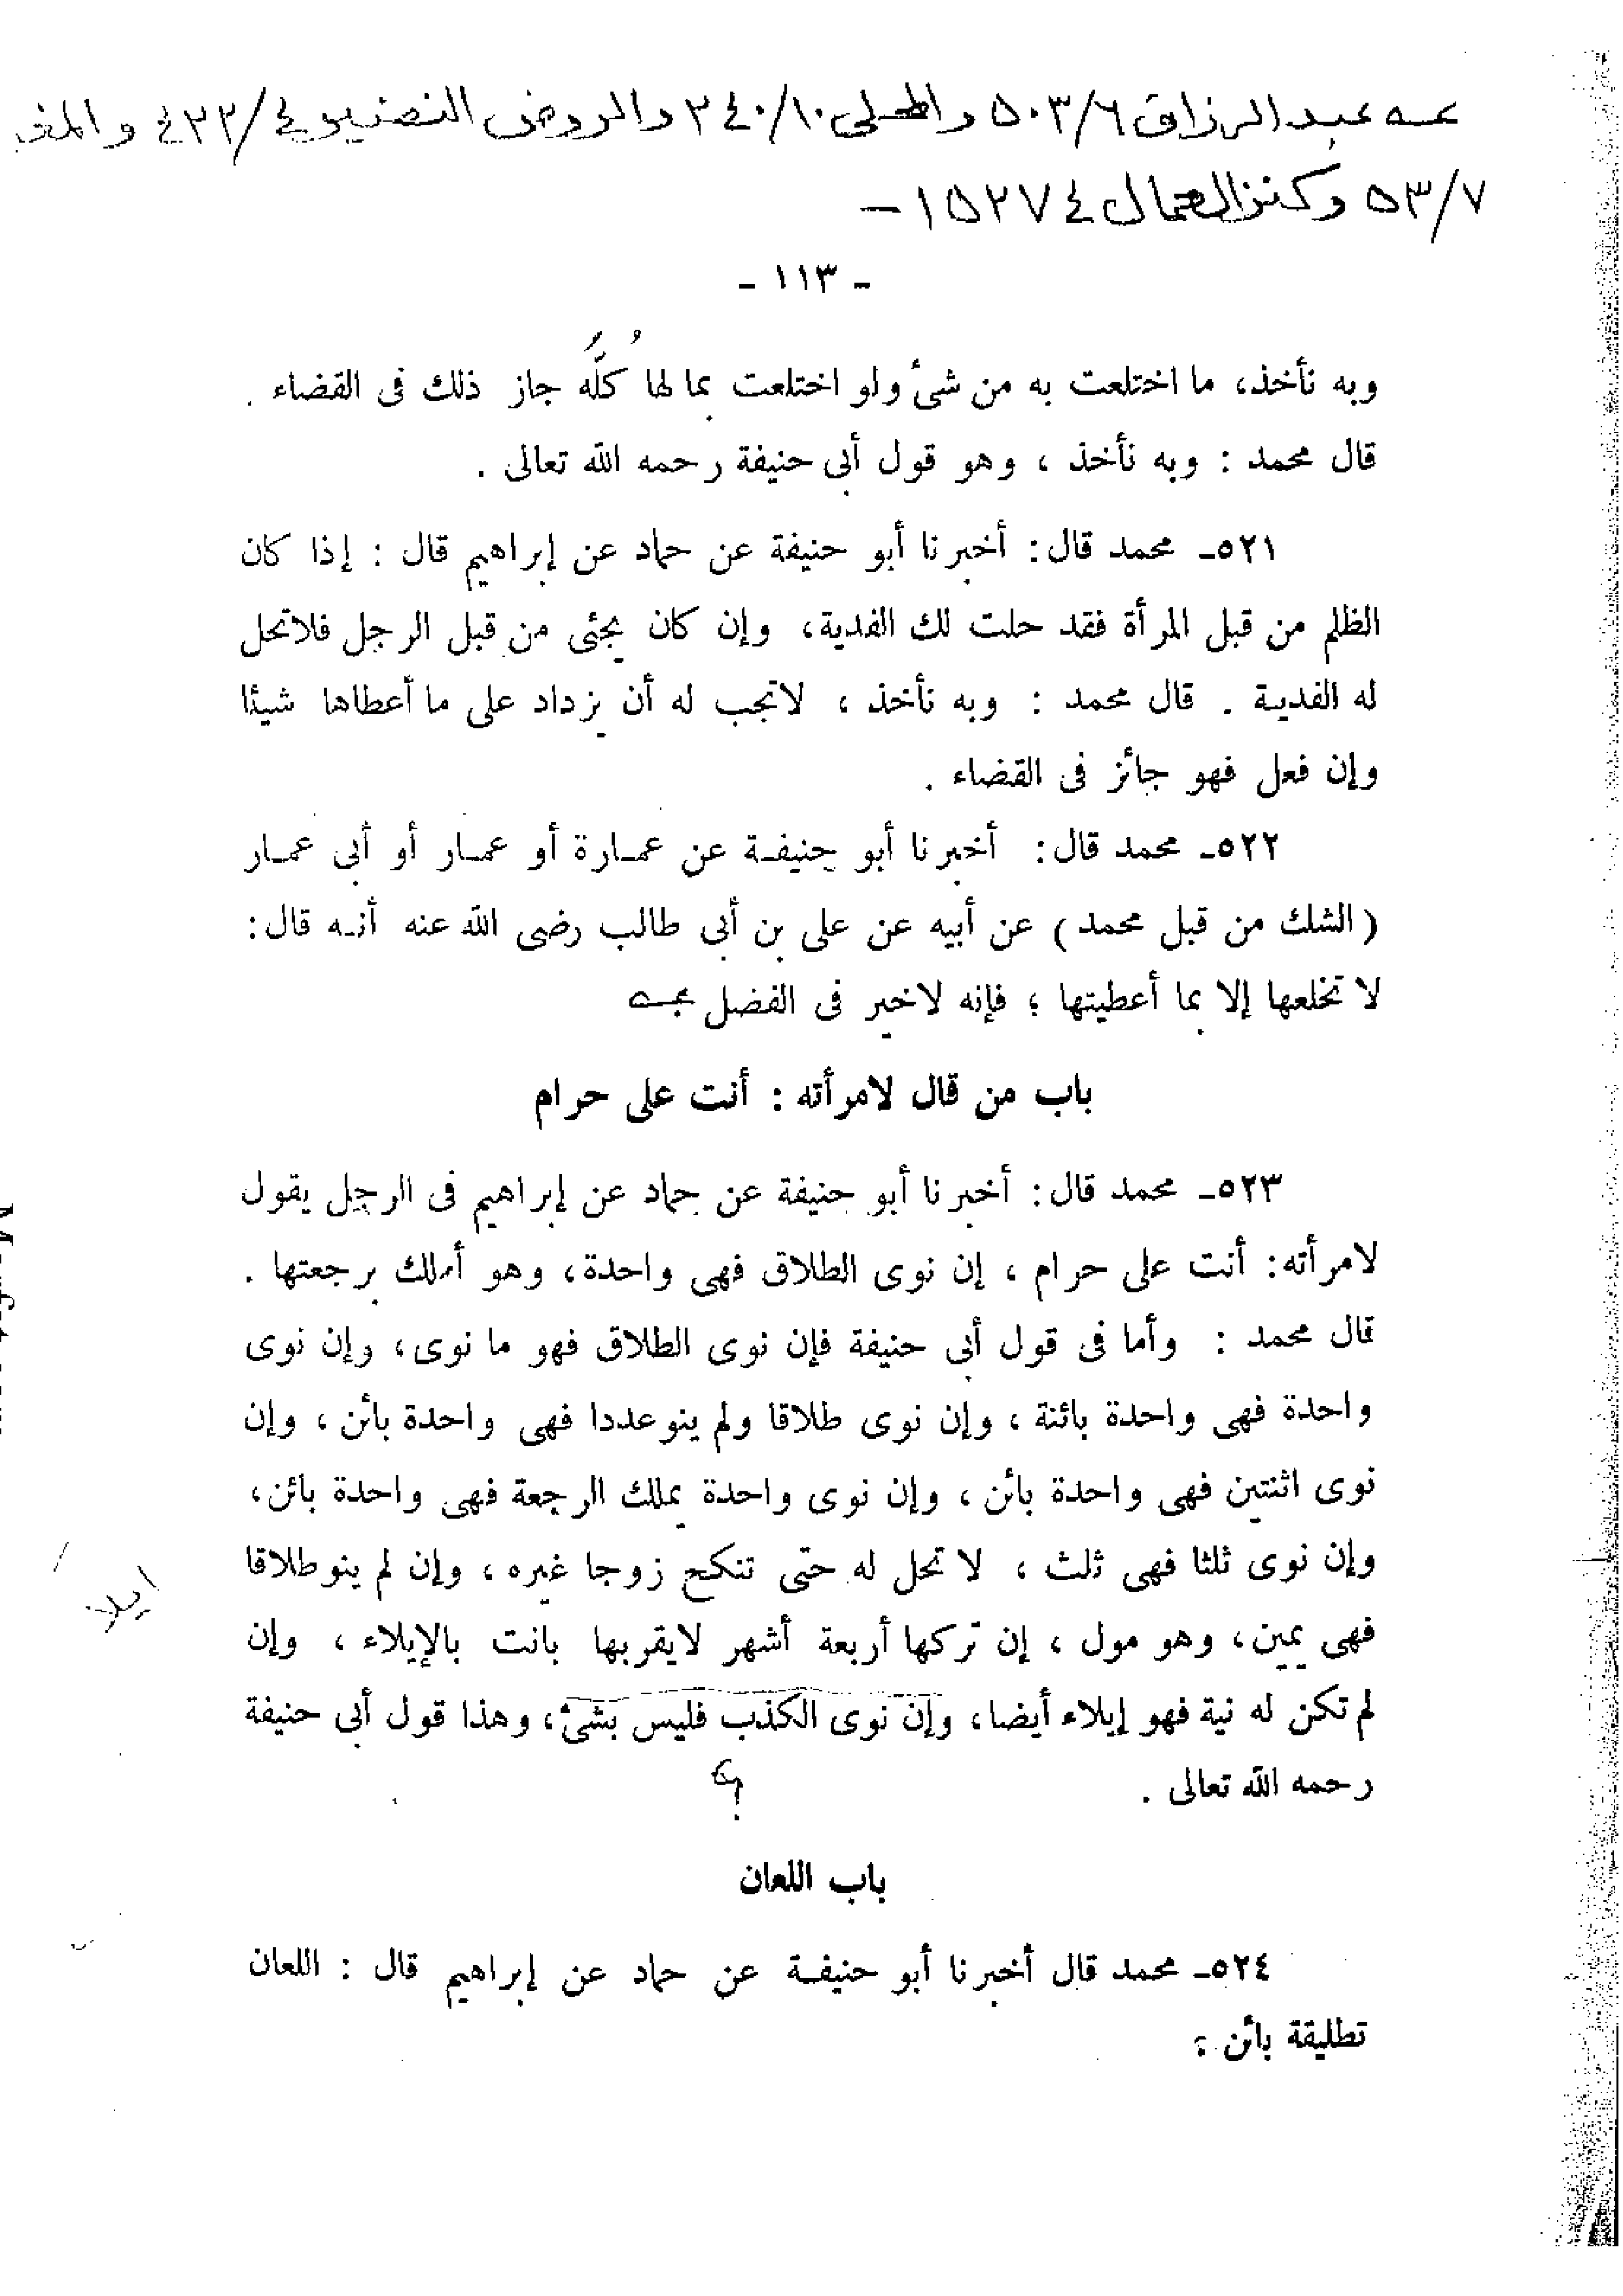 عـه عبد الرزاق ٥٠٣/٦ والمحلى ٢٤٠/١٠ والروض النضير ٤٣٢/٤ والمغـ
٥٣/٧ وكنز العمال ١٥٢٧٤ -
- ١١٣ -
وبه نأخذ، ما اختلعت به من شئ ولو اختلعت بما لها كلَّه جاز ذلك فى القضاء .
قال محمد : وبه نأخذ ، وهو قول أبى حنيفة رحمه الله تعالى .
٥٢١ـ محمد قال: أخبرنا أبو حنيفة عن حماد عن إبراهيم قال : إذا كان
الظلم من قبل المرأة فقد حلت لك الفدية، وإن كان يجئى من قبل الرجل فلاتحل
له الفدية . قال محمد : وبه نأخذ ، لاتجب له أن يزداد على ما أعطاها شيئا
وإن فعل فهو جائز فى القضاء .
٥٢٢ـ محمد قال: أخبرنا أبو حنيفـة عن عمـارة أو عمـار أو أبى عمـار
(الشك من قبل محمد) عن أبيه عن على بن أبى طالب رضى الله عنه أنـه قال:
لا تخلعها إلا بما أعطيتها ؛ فإنه لاخير فى الفضل
باب من قال لامرأته : أنت على حرام
٥٢٣ـ محمد قال: أخبرنا أبو حنيفة عن حماد عن إبراهيم فى الرجل يقول
لامرأته: أنت على حرام ، إن نوى الطلاق فهى واحدة، وهو أملك برجعتها .
قال محمد : وأما فى قول أبى حنيفة فإن نوى الطلاق فهو ما نوى، وإن نوى
واحدة فهى واحدة بائنة ، وإن نوى طلاقا ولم ينو عددا فهى واحدة بائن ، وإن
نوى اثنتين فهى واحدة بائن ، وإن نوى واحدة يملك الرجعة فهى واحدة بائن،
وإن نوى ثلثا فهى ثلث ، لا تحل له حتى تنكح زوجا غيره ، وإن لم ينو طلاقا
ايلاء
فهى يمين، وهو مول ، إن تركها أربعة أشهر لايقربها بانت بالإيلاء ، وإن
لم تكن له نية فهو إيلاء أيضا، وإن نوى الكذب فليس بشئ، وهذا قول أبى حنيفة
رحمه الله تعالى .
باب اللعان
٥٢٤ـ محمد قال أخبرنا أبو حنيفـة عن حماد عن إبراهيم قال : اللعان
تطليقة بائن ؛